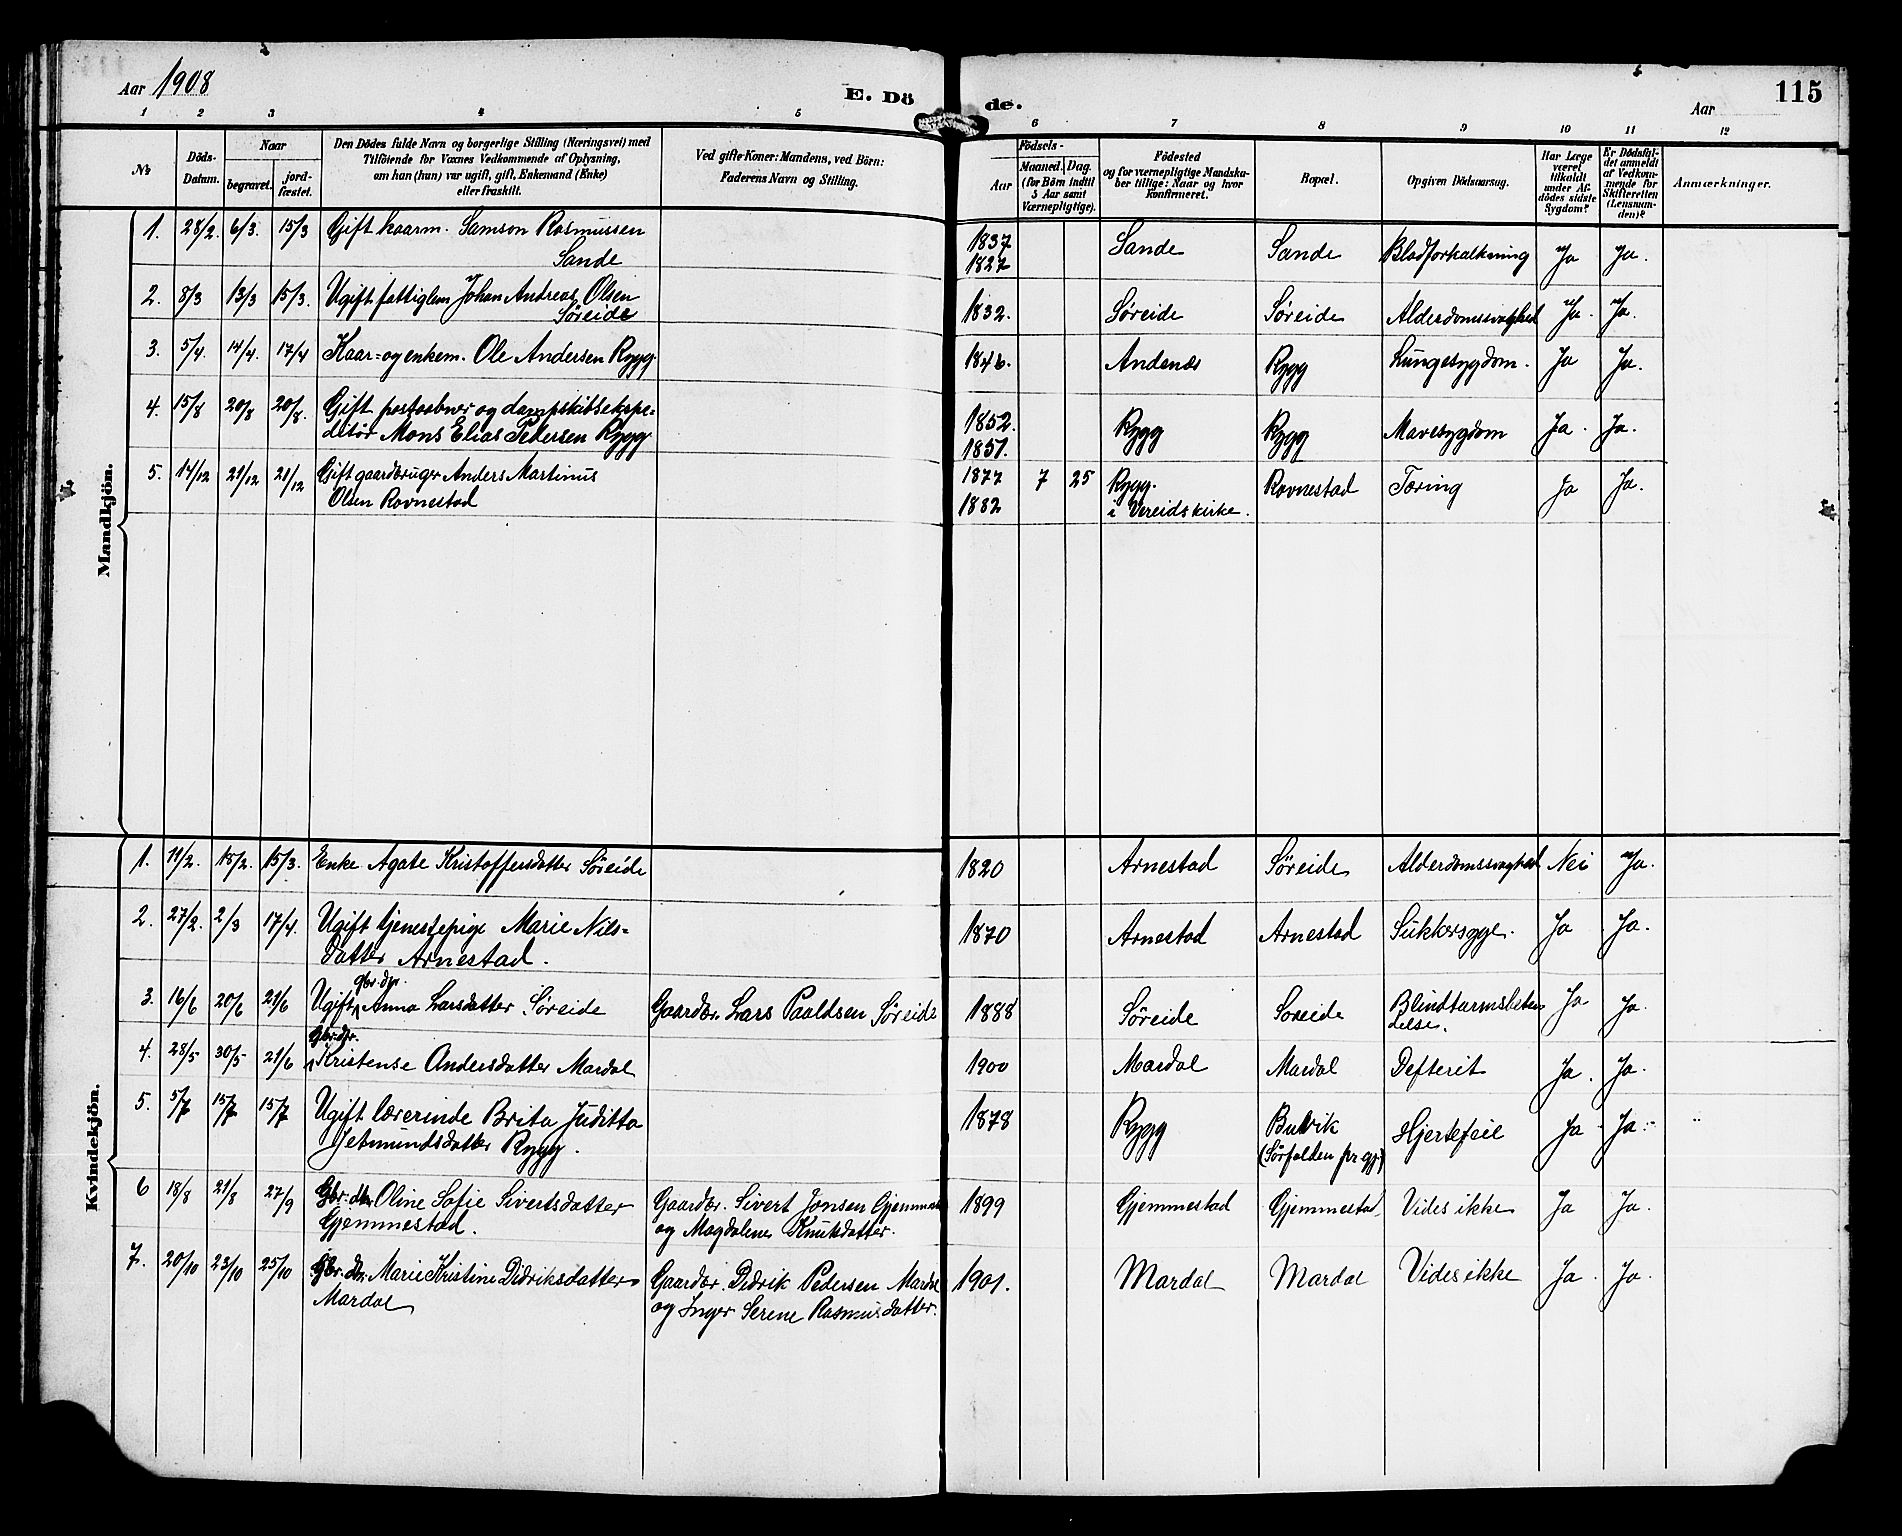 Aar 1908
E. Dö de.
Aar
115
1 2 3 4 5 6 7 8 9 10 11 12
No
Döds-Datum.
Naar
begravet.
jord-fæstet.
Den Dödes fulde Navn og borgerlige Stilling (Næringsvei) med
Tilföiende for Voxnes Vedkommende af Oplysning,
om han (hun) var ugift, gift, Enkemand (Enke)
eller fraskilt.
Ved gifte Koner: Mandens, ved Börn:
Faderens Navn og Stilling.
Födsels-
Aar
Maaned. Dag.
(for Börn indtil
5 Aar samt
Værnepligtige).
Födested
og for værnepligtige Mandska-
ber tillige: Naar og hvor
konfirmeret.
Bopæl.
Opgiven Dödsaarsag.
Har Læge
været
tilkaldt
under Af-
dödes sidste
Sygdom?
Er Dödsfal-
det anmeldt
af Vedkom-
mende for
Skifteretten
(Lensman-
den)?
Anmærkninger.
Mandkjön.
1. 28/2. 6/3. 15/3 Gift kaarm. Samson Rasmussen
Sande
1837 Sande Sande Blodforkalkning Ja Ja.
1827
2. 8/3 13/3 15/3. Ugift fattiglem Johan Andreas Olsen
Søreide
1832. Søreide Søreide Alderdomssvaghed Ja. Ja.
3. 5/4. 14/4. 17/4 Kaar- og enkem. Ole Andersen Rygg. 1846. Andenæs Rygg Lungesygdom. Ja Ja.
4. 15/8 20/8 20/8. Gift postaabner og dampskibsekspe-
ditør Mons Elias Pedersen Rygg
1852. Rygg Rygg Mavesygdom Ja. Ja.
1851.
5. 14/12 21/12 21/12 Gift gaardbruger Anders Martinus
Olsen Rovnestad
1877 7 25 Rygg. Rovnestad Tæring Ja Ja.
1882 i Vereidskirke.
Kvindekjön.
1. 11/2. 15/2. 15/3. Enke Agate Kristoffersdatter Søreide 1820 Arnestad Søreide Alderdomssvaghed Nei Ja.
2. 27/2. 2/3 17/4. Ugift tjenestepige Marie Nils-
datter Arnestad.
1870 Arnestad Arnestad Sukkersyge. Ja Ja.
gbr.dtr.
3. 16/6 20/6 21/6 Ugift Anna Larsdatter Søreide Gaardbr. Lars Paaldsen Søreide 1888 Søreide Søreide Blindtarmsbeten
delse. Ja Ja.
Gbr.dtr.
4. 28/5 30/5 21/6 Kristense Andersdatter Mardal 1900 Mardal Mardal Defterit Ja. Ja.
5. 5/7 15/7 15/7 Ugift lærerinde Brita Juditta
Jetmundsdatter Rygg.
1878 Rygg Hjertefeil Ja. Ja.
(Sørfolden prgj.)
6 18/8 21/8 27/9 Gbr. dtr. Oline Sofie Sivertsdatter
Gjemmestad.
Gaardbr. Sivert Jonsen Gjemmestad
og Magdalene Knutsdatter.
1899 Gjemmestad Gjemmestad Vides ikke Ja Ja.
7. 20/10 23/10 25/10 Gbr. dtr. Marie Kristine Didriksdatter
Mardal
Gaardbr. Didrik Pedersen Mardal
og Inger Serene Rasmusdatter.
1901. Mardal Mardal Vides ikke Ja. Ja.